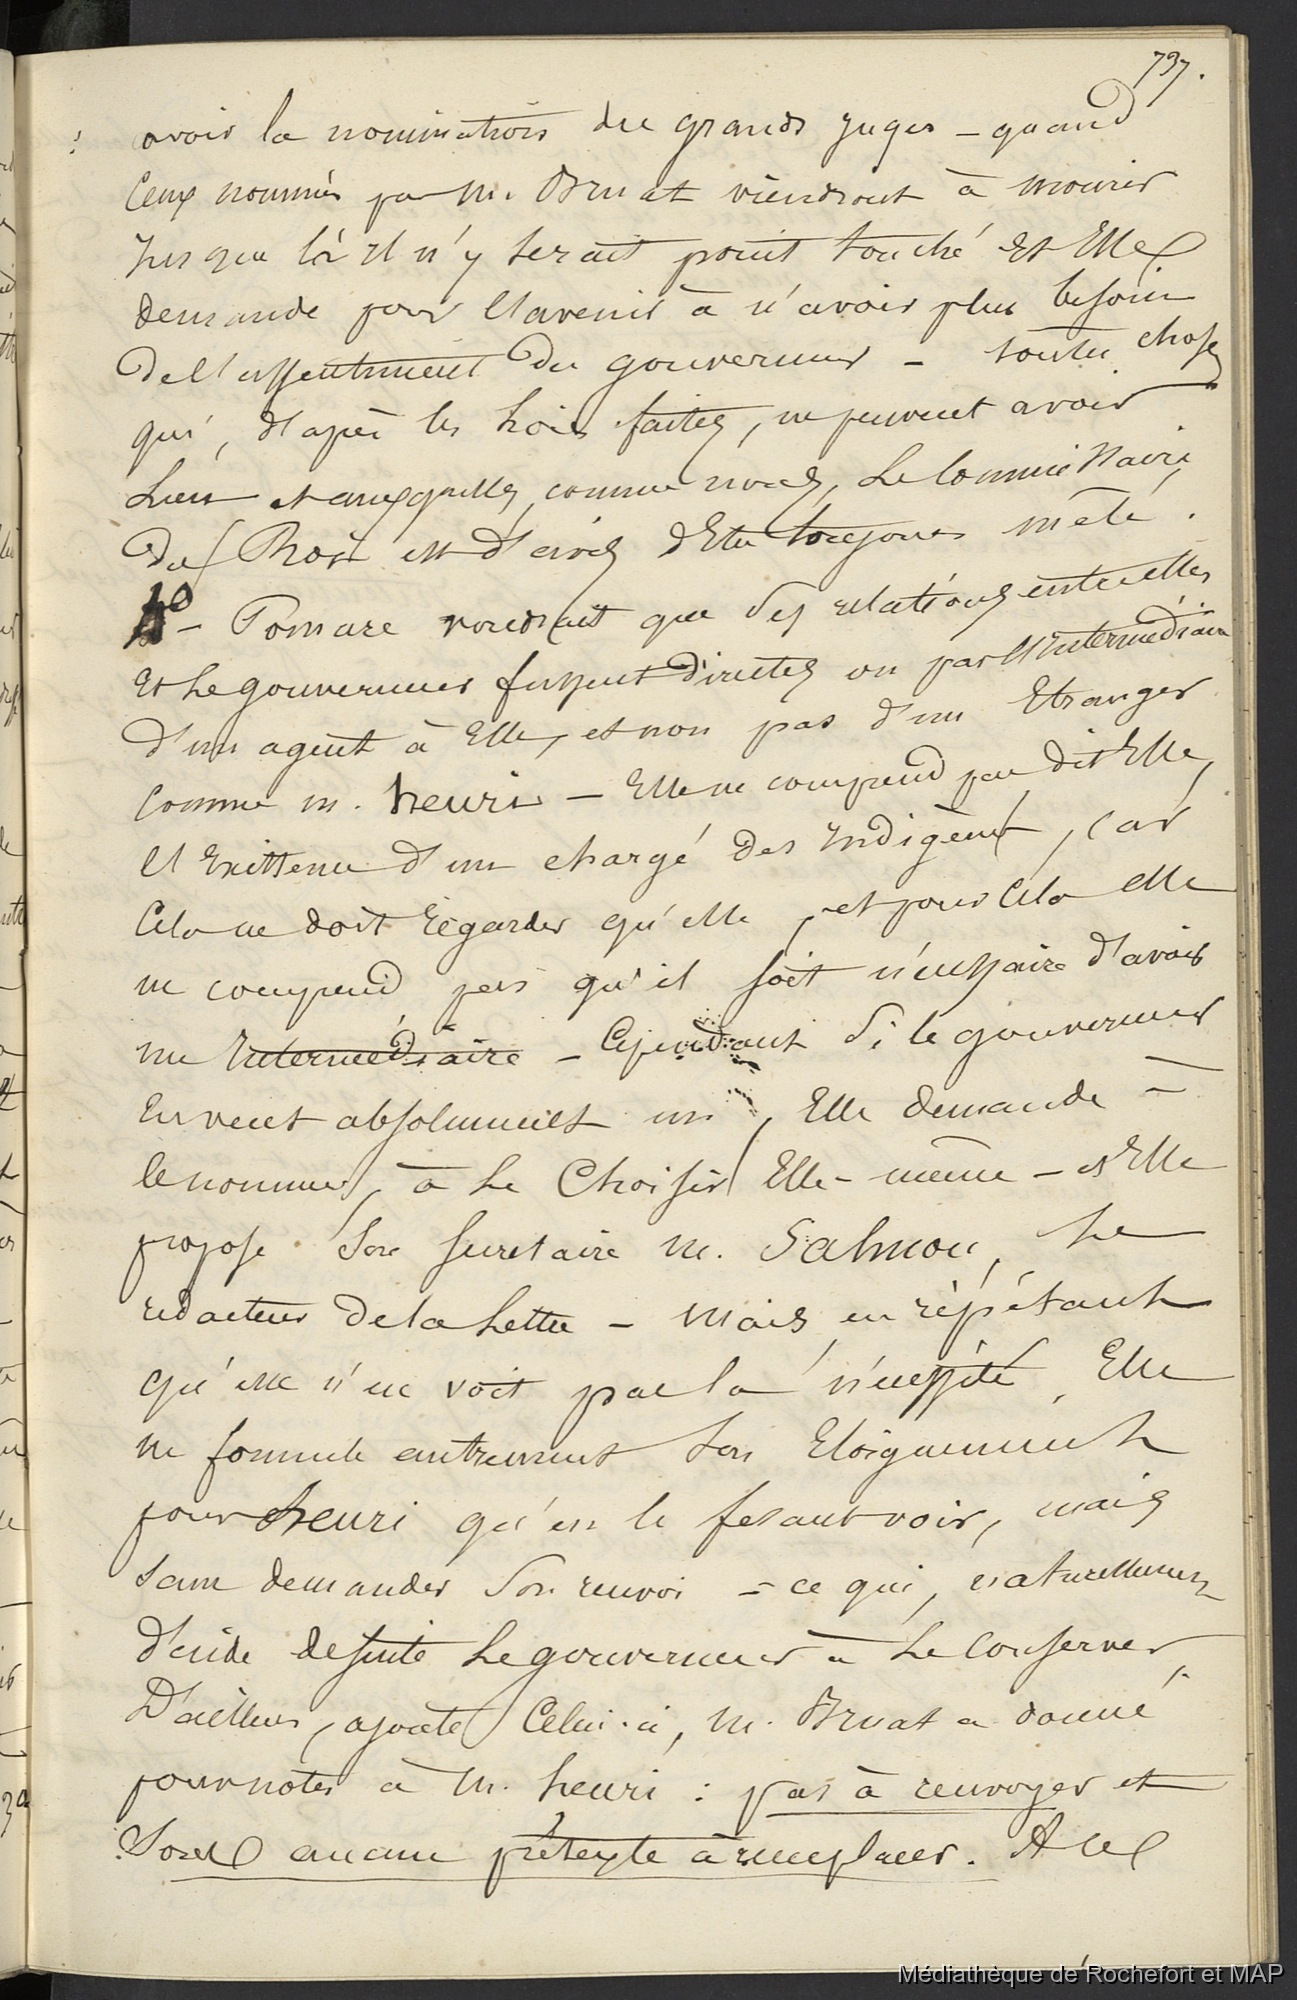 797.
avoir la nomination des grands juges – quand
ceux nommés par M. Bruat viendront à mourir
jusque là il n'y serait point touché et Elle
demande pour l'avenir à n'avoir plus besoin
de l'assentiment du gouverneur – toutes choses
qui, d'après les Lois faites, ne peuvent avoir
Lieu et auxquelles, comme nous, Le Commissaire
du Roi est d'avis d'Etre toujours mêlé.
4o – Pomare voudrait que Ses relations entre elles
et Le gouverneur fussent directes ou par l'Intermédiaire
d'un agent à Elle, et non pas d'un Etranger
comme m. henri – Elle ne comprend pas dit Elle,
l'Existence d'un chargé des Indigènes, car
Cela ne doit Regarder qu'elle, et pour Cela elle
ne comprend pas qu'il soit nécessaire d'avoir
un Intermédiaire – Cependant Si le gouverneur
En veut absolument un, Elle demande à
le nommer, à Le Choisir Elle-même – et Elle
propose Son Secretaire m. Salmon, Le
rédacteur de la Lettre – Mais en répétant
qu'elle n'en voit pas la nécessité, Elle
ne formule autrement Son Eloignement
pour henri qu'en le fesant voir, mais
Sans demander Son renvoi – ce qui, naturellement
décide de suite Le gouverneur à Le Conserver,
D'ailleurs, ajoute Celui-ci, M. Bruat a donné
pour notes à M. henri : pas à renvoyer et
Sous aucun prétexte à remplacer. A ce
Médiathèque de Rochefort et MAP